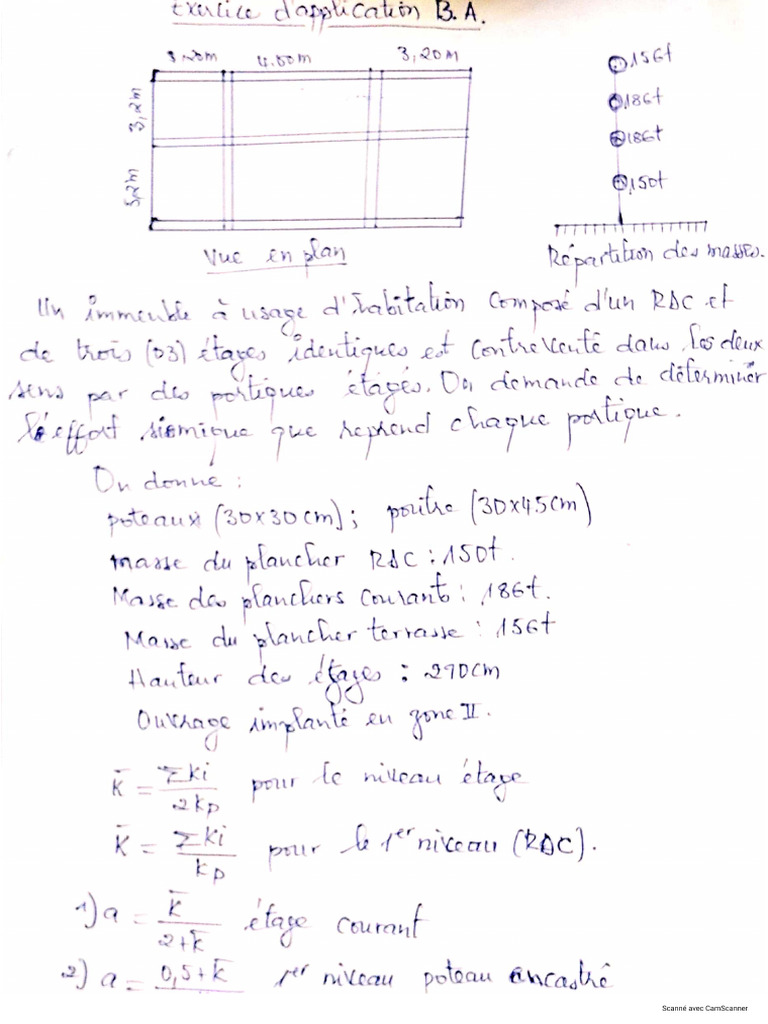 Exercice d'application B.A.
3.20m 4.80m 3,20m
3,2m
5,2m
156t
186t
186t
150t
Vue en plan
Répartition des masses.
Un immeuble à usage d'habitation composé d'un RDC et
de trois (03) étages identiques est contreventé dans les deux
sens par des portiques étagés. On demande de déterminer
l'effort sismique que reprend chaque portique.
On donne :
poteaux (30x30cm) ; poutre (30x45cm)
masse du plancher RDC : 150t.
Masse des planchers courant : 186t.
Masse du plancher terrasse : 156t
Hauteur des étages : 290cm
Ouvrage implanté en zone II.
K̄ = ΣKi / 2Kp pour le niveau étage
K̄ = ΣKi / Kp pour le 1er niveau (RDC).
1) a = K̄ / 2+K̄ étage courant
2) a = 0,5+K̄ 1er niveau poteau encastré
Scanné avec CamScanner